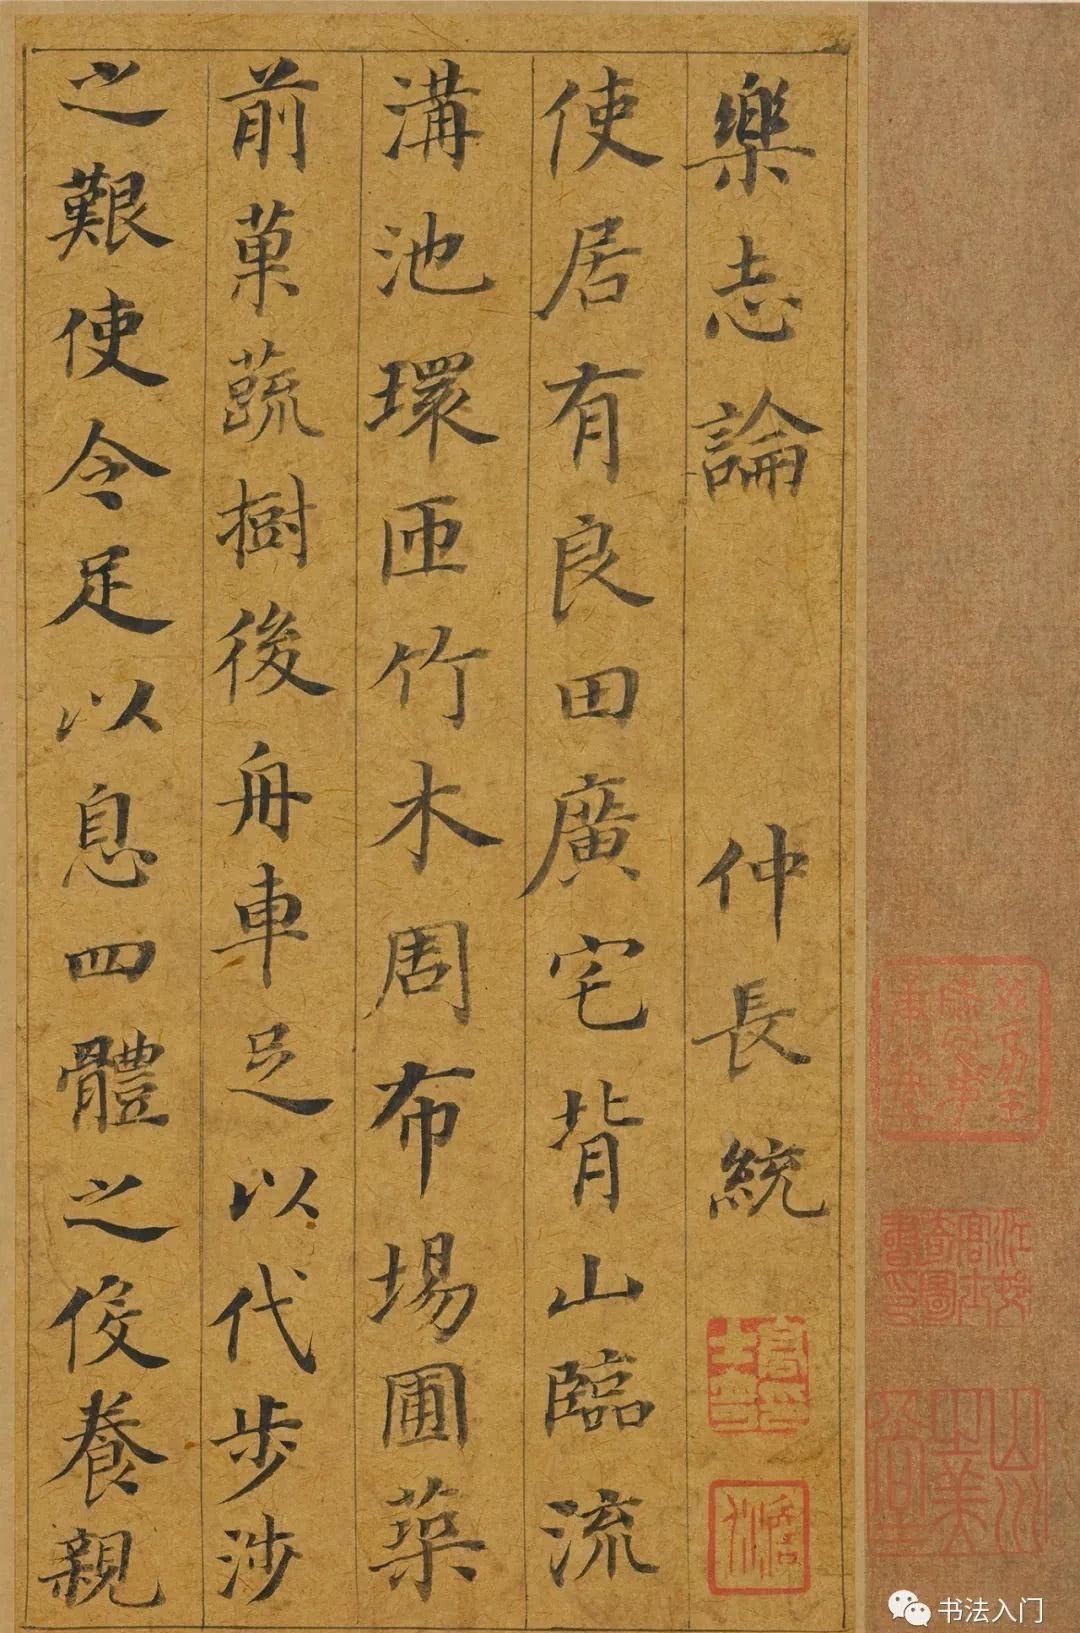 樂志論 仲長統
使居有良田廣宅背山臨流
溝池環匝竹木周布場圃築
前菓蔬樹後舟車足以代步涉
之艱使令足以息四體之役養親
书法入门